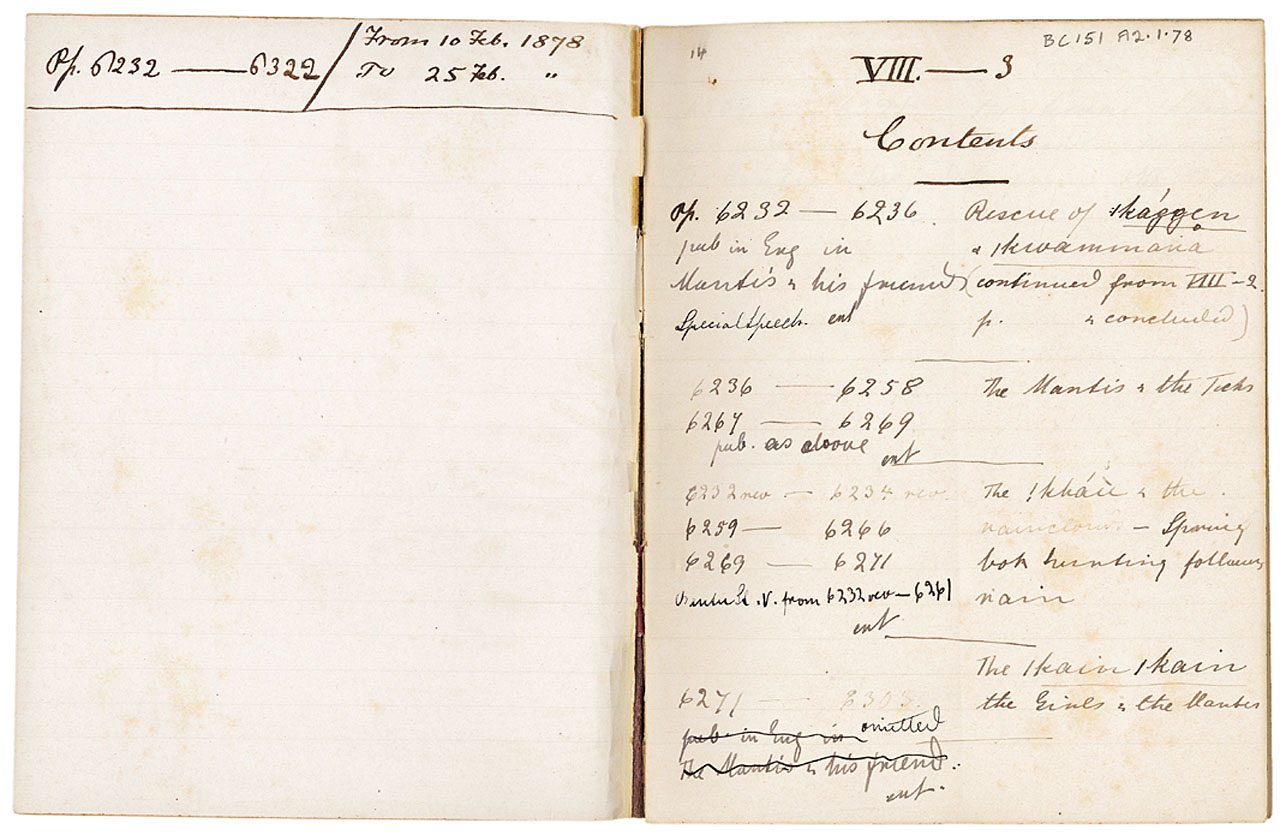 Pp. 6232 — 6322
From 10 Feb. 1878
To 25 Feb. "
14
BC151 A2.1.78
VIII. — 3
Contents
Pp. 6232 — 6236 Rescue of ǀkággen
pub in Eng in & ǀkwammaṅa
Mantis & his friends (continued from VIII–2
Special Speech. ent p. & concluded)
6236 — 6258 The Mantis & the Ticks
6267 — 6269
pub. as above
ent
6232 rev — 6234 rev. The !kháu & the
6259 — 6266 — Spring
6269 — 6271 bok hunting follows
.V. from 6232 rev — 6261 rain
ent
The ǀkain ǀkain
6271 — 6303. the Girls & the Mantis
pub in Eng in omitted
The Mantis & his friend.
ent.